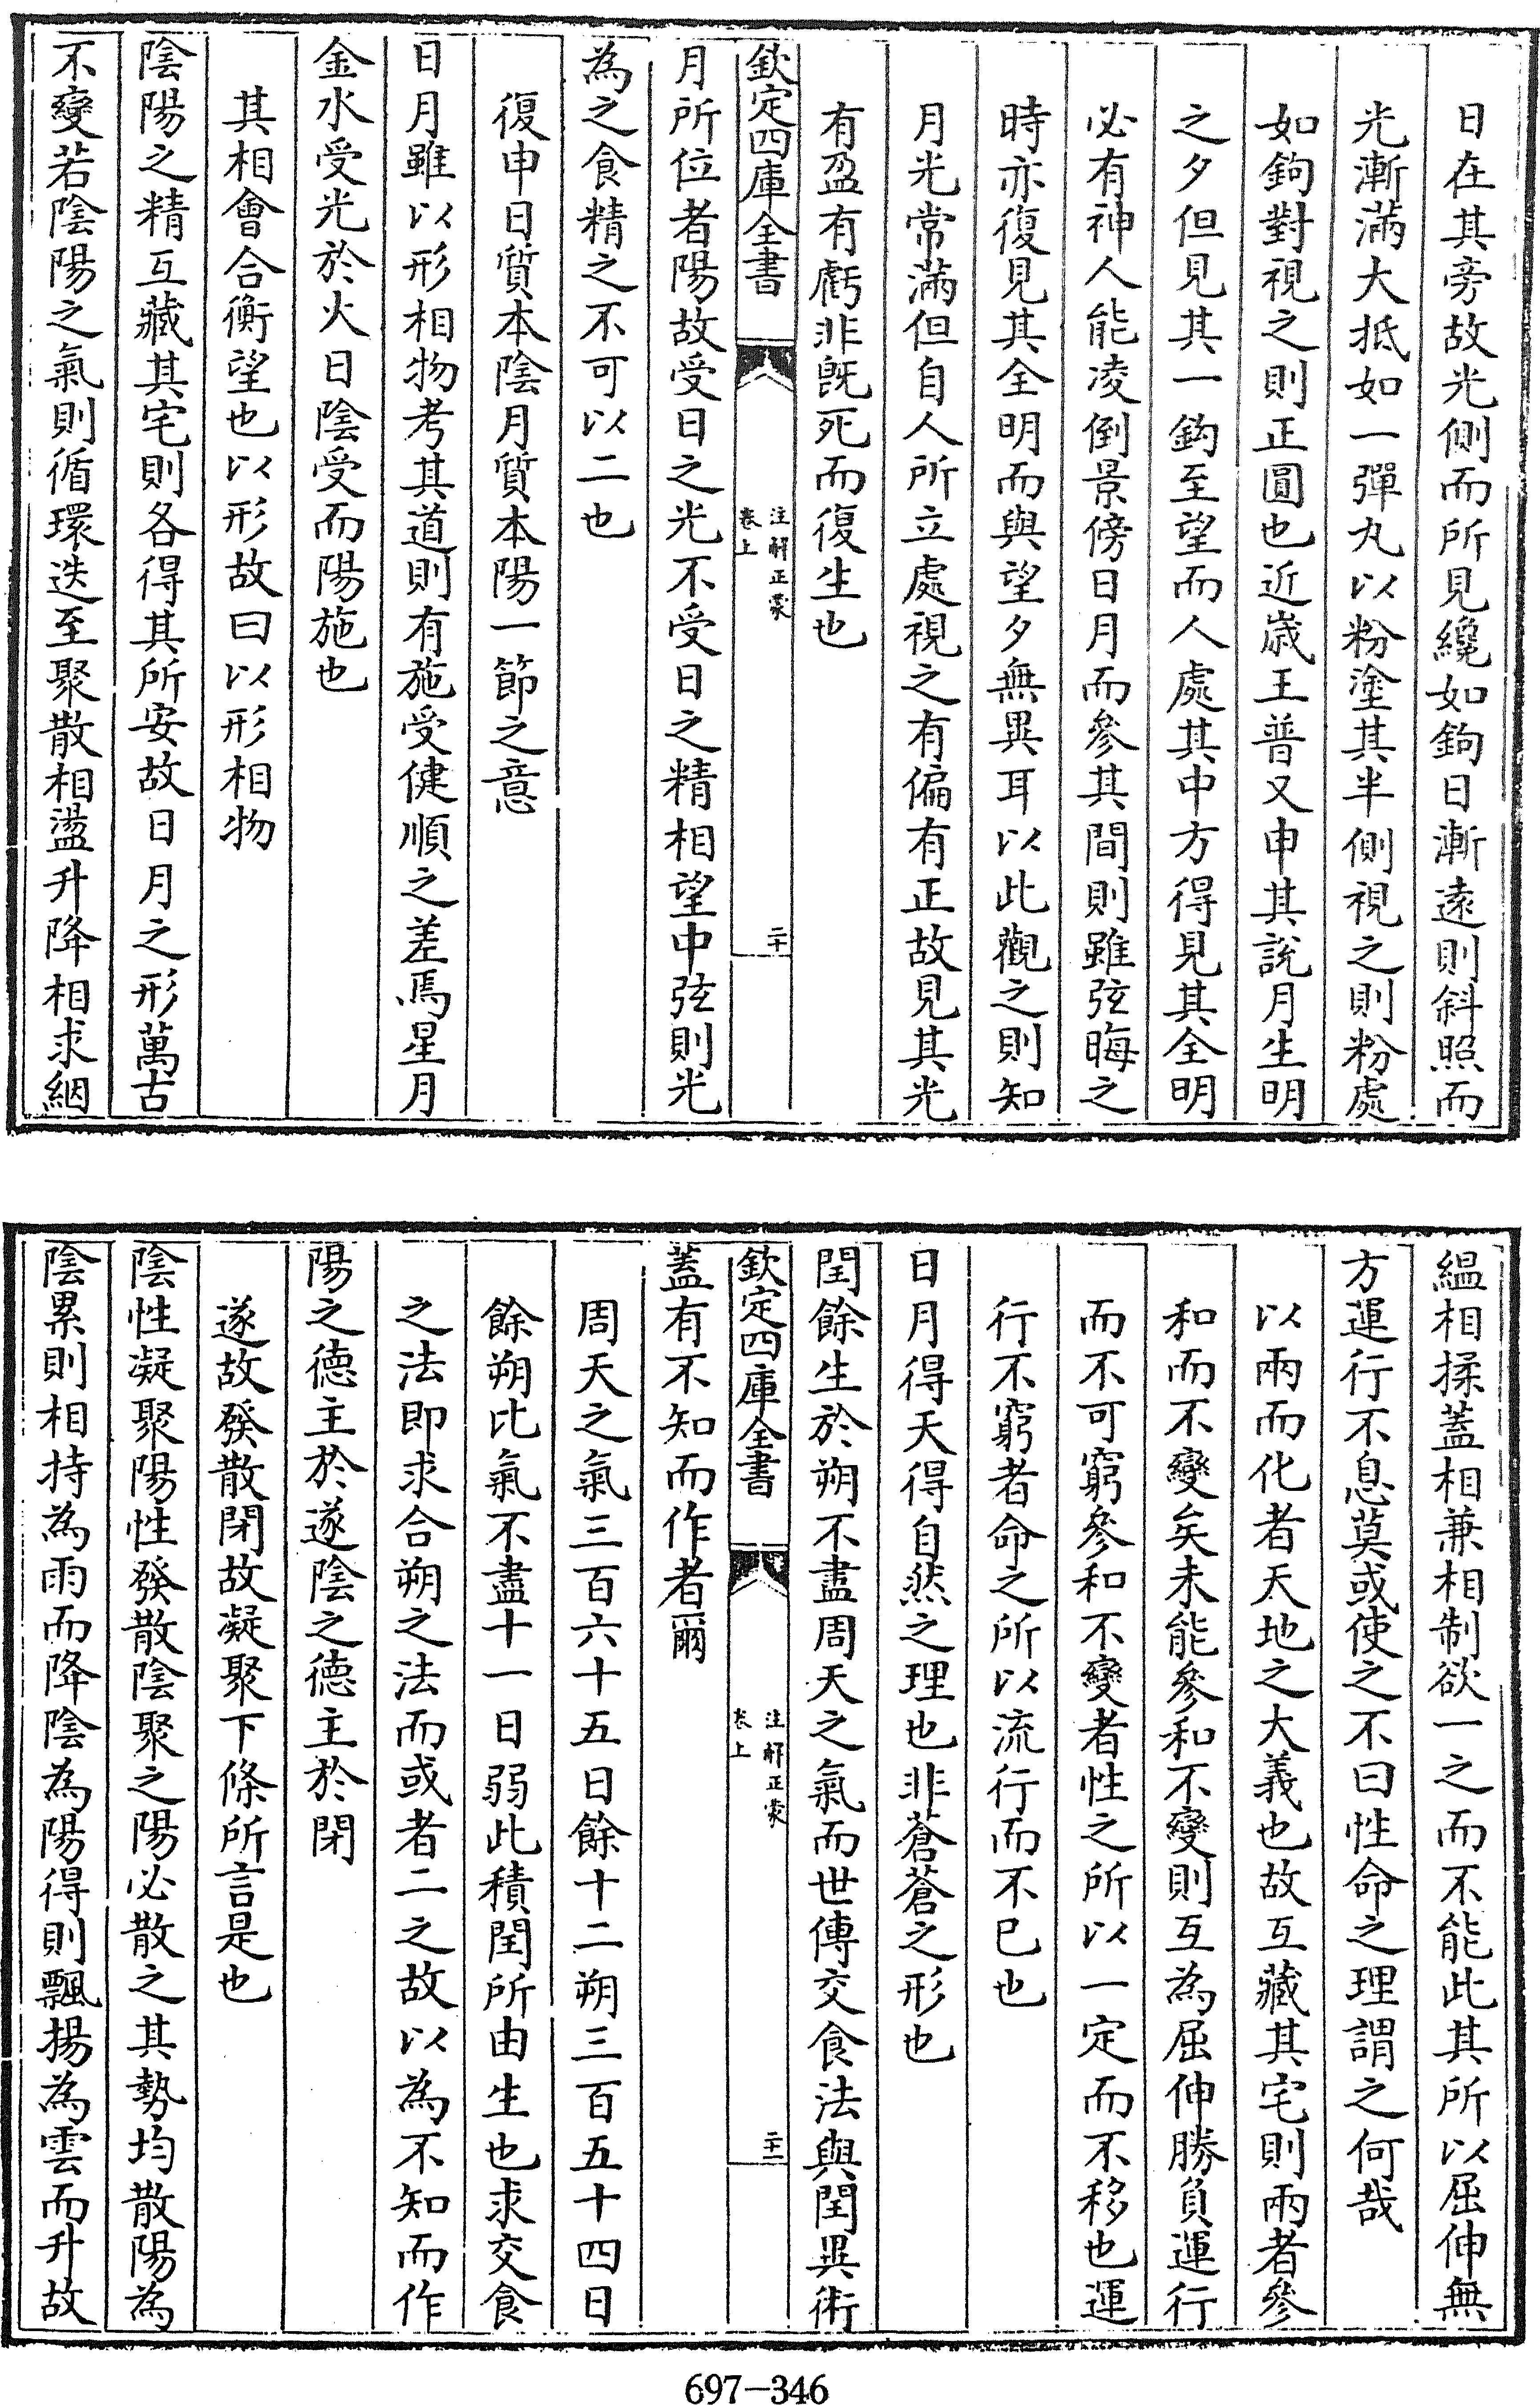 日在其旁故光側而所見纔如鉤日漸遠則斜照而
光漸滿大抵如一彈丸以粉塗其半側視之則粉處
如鉤對視之則正圓也近歲王普又申其說月生明
之夕但見其一鉤至望而人處其中方得見其全明
必有神人能凌倒景傍日月而參其間則雖弦晦之
時亦復見其全明而與望夕無異耳以此觀之則知
月光常滿但自人所立處視之有偏有正故見其光
有盈有虧非旣死而復生也
欽定四庫全書
注解正蒙
卷上
二十
月所位者陽故受日之光不受日之精相望中弦則光
為之食精之不可以二也
復申日質本陰月質本陽一節之意
日月雖以形相物考其道則有施受健順之差焉星月
金水受光於火日陰受而陽施也
其相會合衡望也以形故曰以形相物
陰陽之精互藏其宅則各得其所安故日月之形萬古
不變若陰陽之氣則循環迭至聚散相盪升降相求絪
縕相揉蓋相兼相制欲一之而不能此其所以屈伸無
方運行不息莫或使之不曰性命之理謂之何哉
以兩而化者天地之大義也故互藏其宅則兩者參
和而不變矣未能參和不變則互為屈伸勝負運行
而不可窮參和不變者性之所以一定而不移也運
行不窮者命之所以流行而不已也
日月得天得自然之理也非蒼蒼之形也
閏餘生於朔不盡周天之氣而世傳交食法與閏異術
欽定四庫全書
注解正蒙
卷上
二十一
蓋有不知而作者爾
周天之氣三百六十五日餘十二朔三百五十四日
餘朔比氣不盡十一日弱此積閏所由生也求交食
之法即求合朔之法而或者二之故以為不知而作
陽之德主於遂陰之德主於閉
遂故發散閉故凝聚下條所言是也
陰性凝聚陽性發散陰聚之陽必散之其勢均散陽為
陰累則相持為雨而降陰為陽得則飄揚為雲而升故
697-346